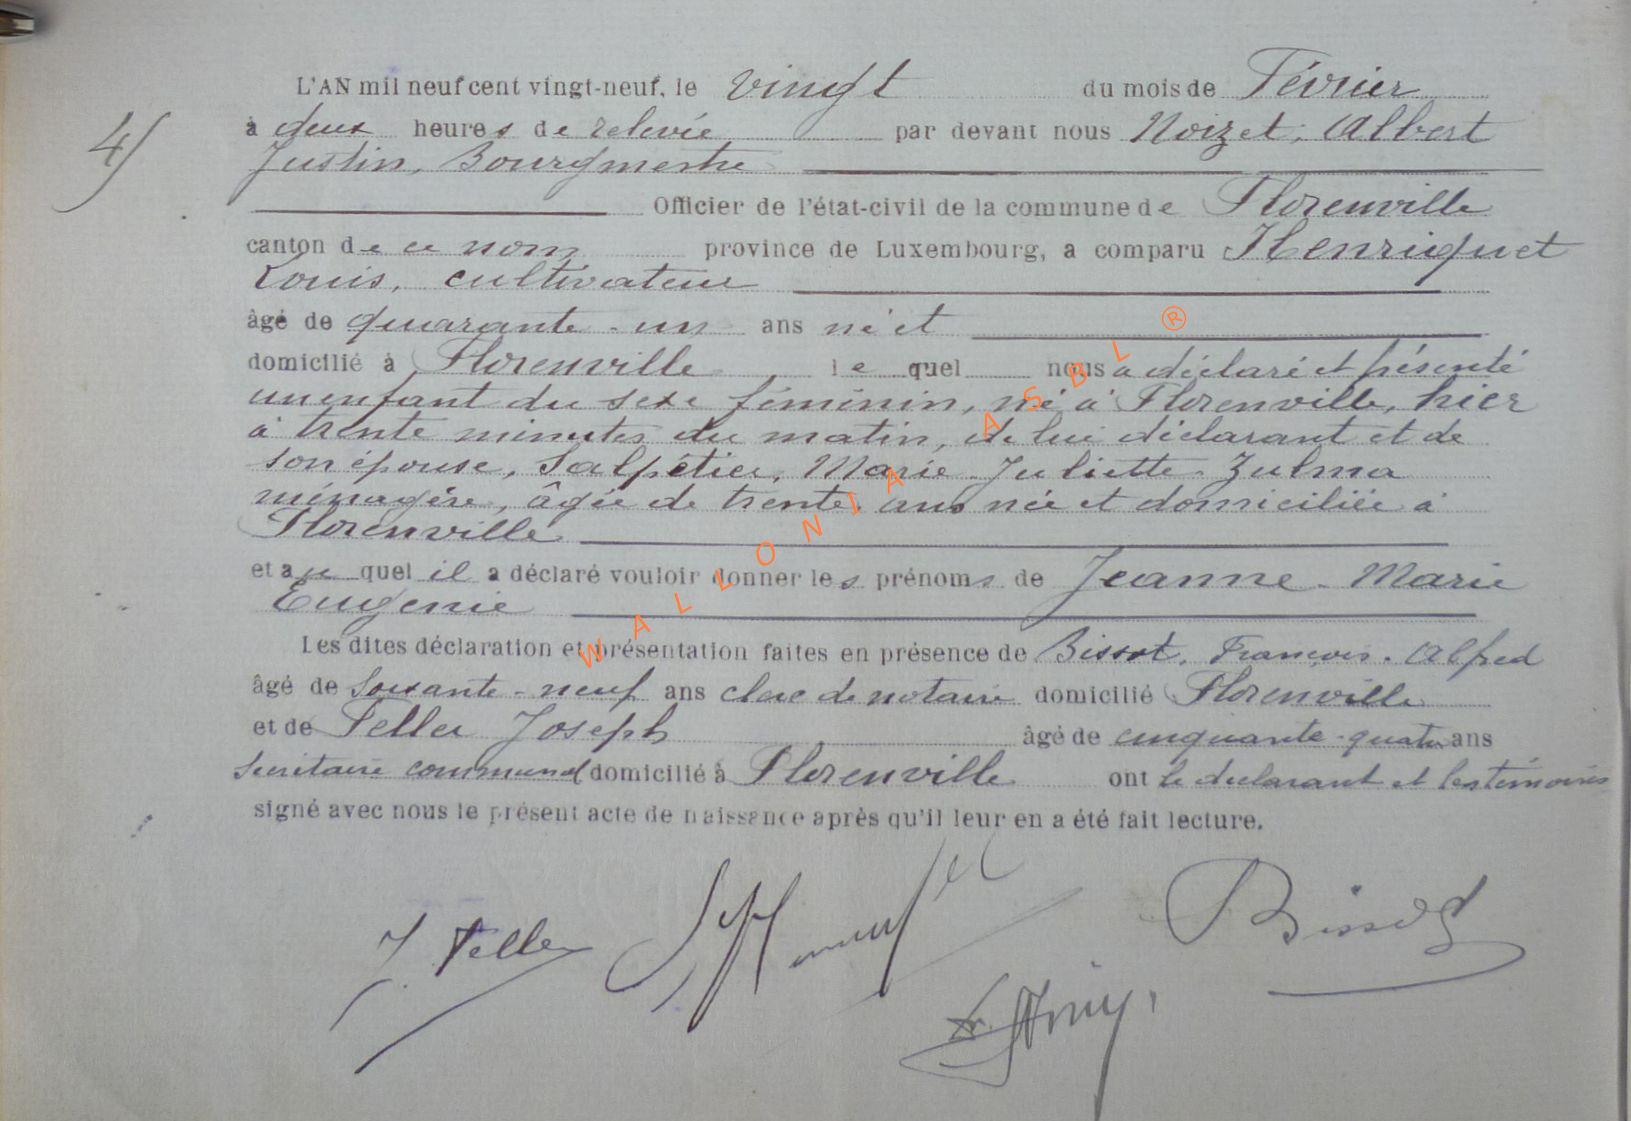 4)
L'AN mil neuf cent vingt-neuf, le vingt du mois de Février
à deux heures de relevée par devant nous Noizet, Albert
Justin, Bourgmestre
Officier de l'état-civil de la commune de Florenville
canton de ce nom province de Luxembourg, a comparu Henriquet
Louis, cultivateur
âgé de quarante-un ans né et
domicilié à Florenville lequel nous a déclaré et présenté
un enfant du sexe féminin, né à Florenville, hier
à trente minutes du matin, de lui déclarant et de
son épouse, Salpétier, Marie-Juliette-Zulma
ménagère, âgée de trente ans née et domiciliée à
Florenville
et au quel il a déclaré vouloir donner les prénoms de Jeanne-Marie
Eugénie
Les dites déclaration et présentation faites en présence de Bissot, François-Alfred
âgé de soixante-neuf ans clerc de notaire domicilié Florenville
et de Feller Joseph âgé de cinquante-quatre ans
secrétaire communal domicilié à Florenville ont le déclarant et les témoins
signé avec nous le présent acte de naissance après qu'il leur en a été fait lecture.
J. Feller Bissot
WALLONIA ASBL ®